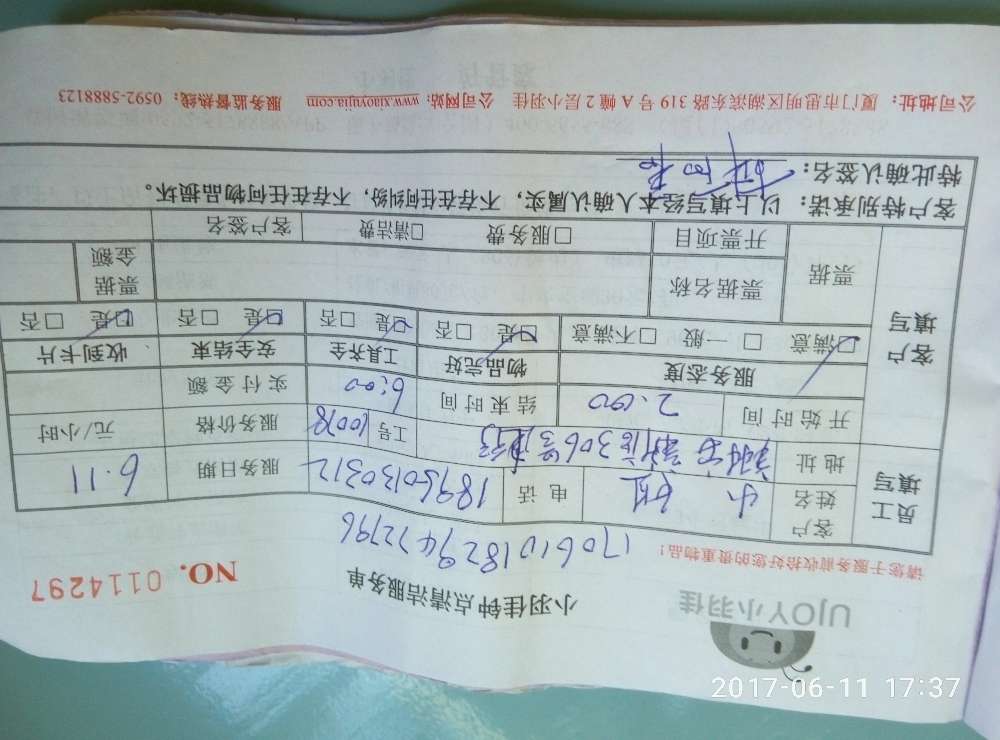 UJOY小羽佳
小羽佳钟点清洁服务单
NO. 0114297
请您于服务前收拾好您的贵重物品!
1706101829472796
员工填写
客户姓名 小 电话 18960130312 服务日期 6.11
地址 306号 工号 10078 服务价格 元/小时
开始时间 2:00 结束时间 6:00 实付金额
客户填写
服务态度 物品完好 工具齐全 安全结束 收到卡片
□满意 □一般 □不满意 □是 □否 □是 □否 □是 □否 □是 □否
票据 票据名称 票据金额
开票项目 □服务费 □清洁费 客户签名
客户特别承诺:以上填写经本人确认属实,不存在任何纠纷,不存在任何物品损坏。
特此确认签名:
公司地址:厦门市思明区湖滨东路 319 号 A 幢 2 层小羽佳 公司网站:www.xiaoyujia.com 服务监督热线:0592-5888123
2017-06-11 17:37